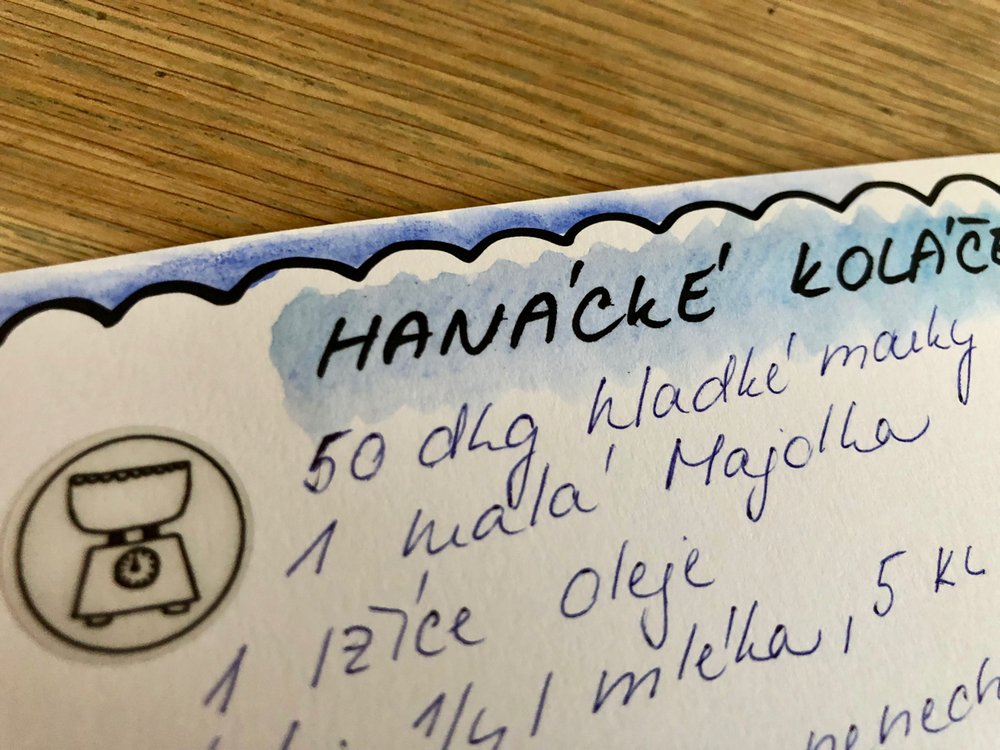 HANÁCKÉ KOLÁČE
50 dkg hladké mouky
1 malá Majolka
1 lžíce oleje
1/4 l mléka, 5 kl